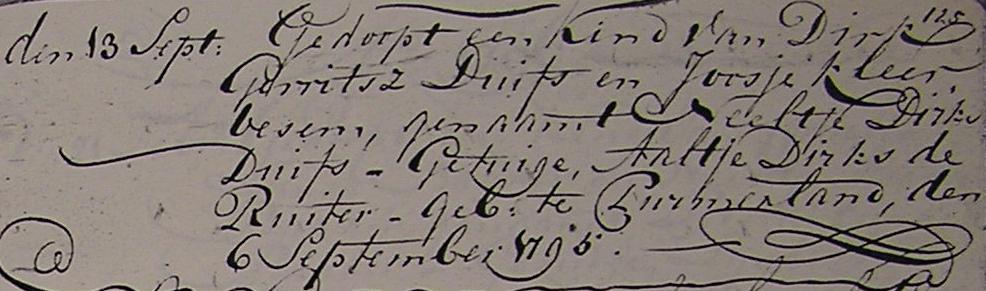 den 13 Sept: Gedoopt een kind van Dirk 125
Gerritsz Duijfs en Joosje kleer
besem, genaamt Neeltje Dirks
Duijfs - Getuige, Aaltje Dirks de
Ruiter - geb: te Purmerland, den
6 September 1795.